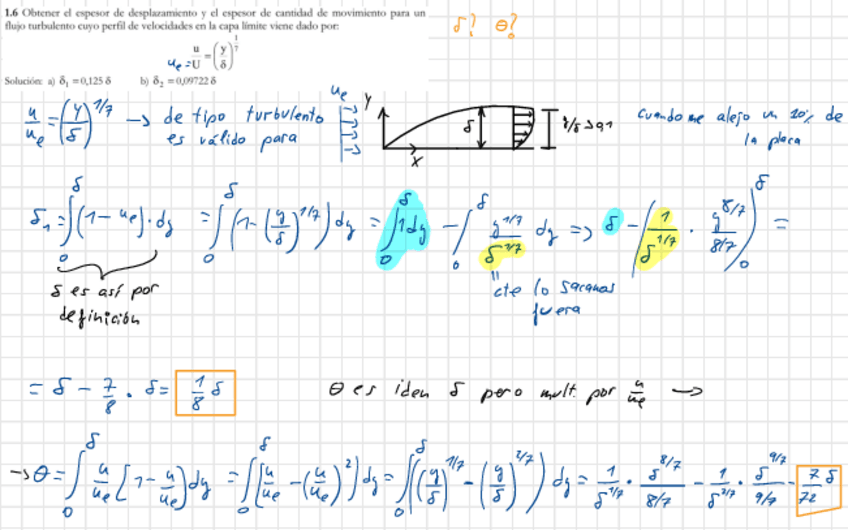 1.6 Obtener el espesor de desplazamiento y el espesor de cantidad de movimiento para un
flujo turbulento cuyo perfil de velocidades en la capa límite viene dado por:
δ? θ?
u_e = u/U = (y/δ)^1/7
Solución: a) δ₁ = 0,125 δ b) δ₂ = 0,09722 δ
u/u_e = (y/δ)^1/7 → de tipo turbulento
es válido para
u_e
Y
δ
X
Y/δ > 0,1
cuando me alejo un 10% de
la placa
δ₁ = ∫₀^δ (1 - u_e) · dy = ∫₀^δ (1 - (y/δ)^1/7) dy = ∫₀^δ 1 dy - ∫₀^δ y^1/7 / δ^1/7 dy => δ - (1/δ^1/7 · y^8/7 / 8/7)₀^δ =
δ es así por
definición
" cte lo sacamos
fuera
= δ - 7/8 · δ = 1/8 δ
θ es iden δ pero mult. por u/u_e →
→ θ = ∫₀^δ u/u_e [1 - u/u_e] dy = ∫₀^δ [u/u_e - (u/u_e)²] dy = ∫₀^δ ((y/δ)^1/7 - (y/δ)^2/7) dy = 1/δ^1/7 · δ^8/7 / 8/7 - 1/δ^2/7 · δ^9/7 / 9/7 - 7δ/72